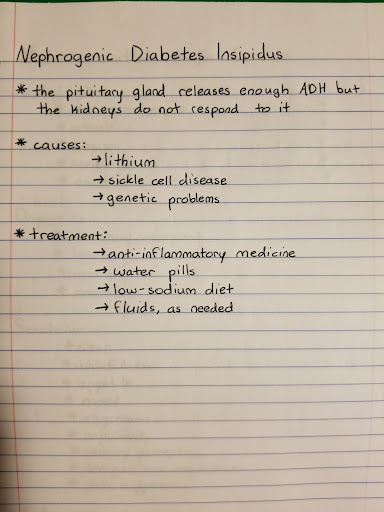 Nephrogenic Diabetes Insipidus
* the pituitary gland releases enough ADH but
the kidneys do not respond to it
* causes:
→ lithium
→ sickle cell disease
→ genetic problems
* treatment:
→ anti-inflammatory medicine
→ water pills
→ low-sodium diet
→ fluids, as needed